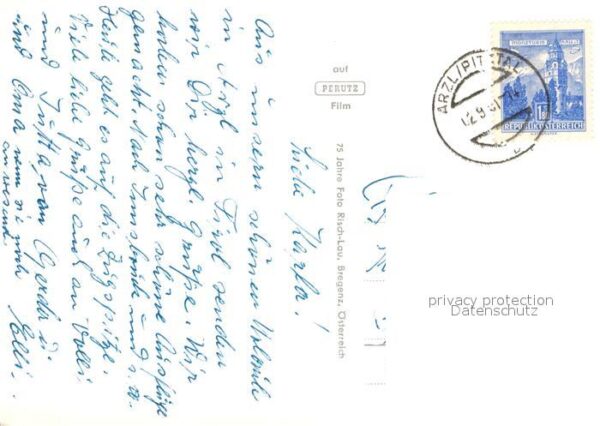 Liebe Karla!
Aus unsern schönen Urlaub
in Arzl in Tirol senden
wir Dir herzl. Grüße. Wir
haben schon sehr schöne Ausflüge
gemacht. Nach Innsbruck und s. w.
Heute geht es auf die Zugspitze.
Viele liebe Grüße auch an
und Jutta, von Gerda u.
und Oma wenn sie noch Elli.
anwesend
auf
PERUTZ
Film
75 Jahre Foto Risch-Lau, Bregenz, Österreich
ARZL/PITZTAL
12.9.61
REPUBLIK ÖSTERREICH
privacy protection
Datenschutz